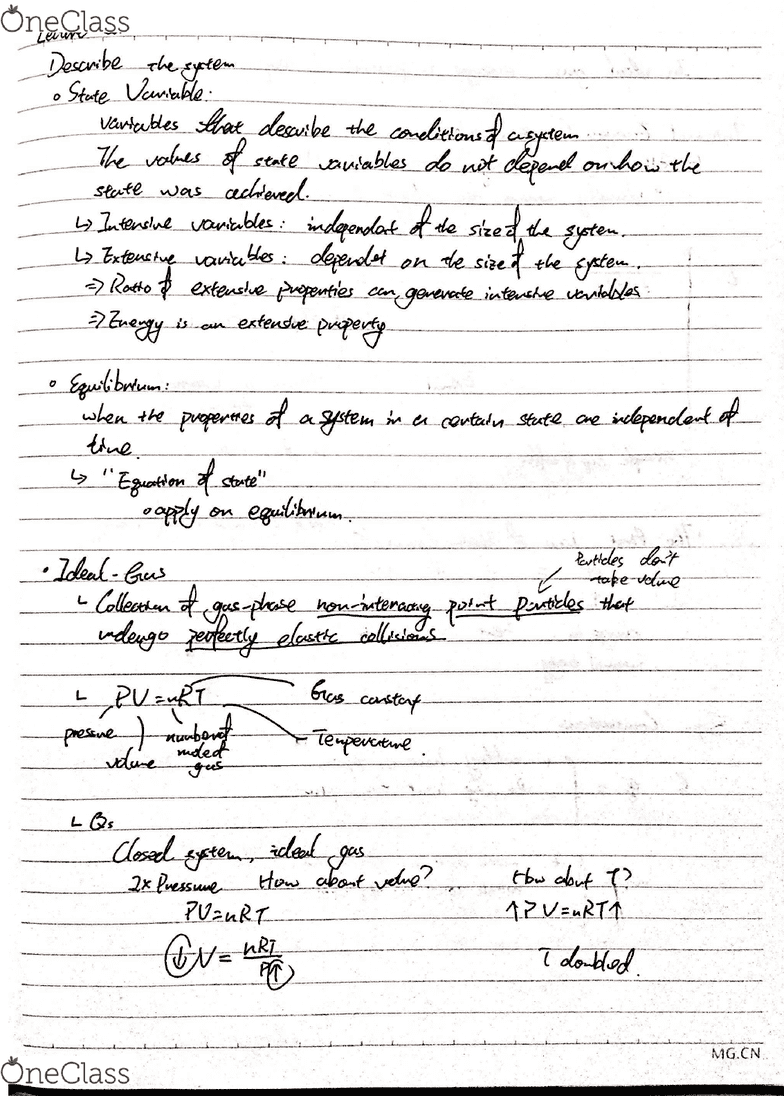 OneClass
Lecture
Describe the system
◦ State Variable:
variables that describe the conditions of a system
The values of state variables do not depend on how the
state was achieved.
↳ Intensive variables: independent of the size of the system.
↳ Extensive variables: dependent on the size of the system.
⇒ Ratio of extensive properties can generate intensive variables
⇒ Energy is an extensive property
◦ Equilibrium:
when the properties of a system in a certain state are independent of
time.
↳ "Equation of state"
◦ apply on equilibrium.
• Ideal-Gas
Particles don't
take volume
└ Collection of gas-phase non-interacting point particles that
undergo perfectly elastic collisions
└ PV=nRT
Gas constant
pressure
volume
number of
moles of
gas
Temperature.
└ Qs
Closed system, ideal gas
2x Pressure How about volume? How about T?
PV=nRT ↑PV=nRT↑
↓V = nRT
P↑
T doubled.
MG.CN
OneClass